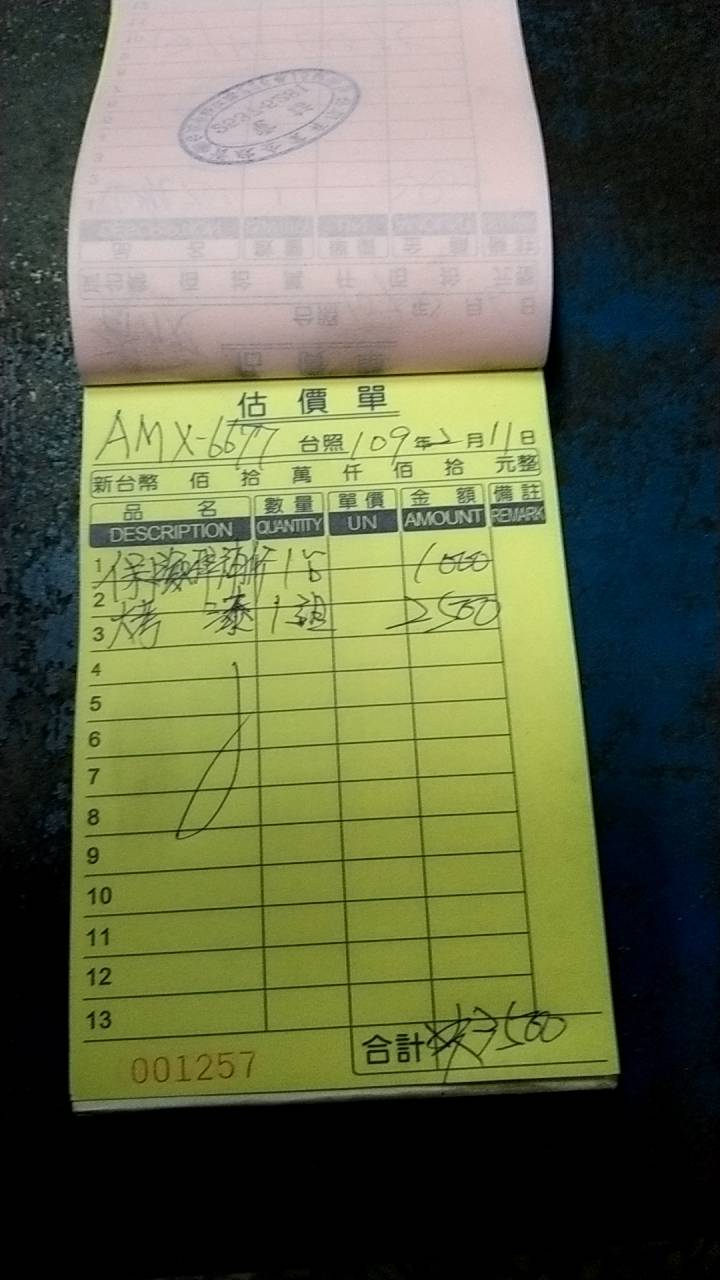 估價單
AMX-6677 台照 109年2月11日
新台幣 佰 拾 萬 仟 佰 拾 元整
品名 數量 單價 金額 備註
DESCRIPTION QUANTITY UN AMOUNT REMARK
1 保險桿 1 1000
2
3 烤漆 1組 2500
4
5
6
7
8
9
10
11
12
13
合計 3500
001257